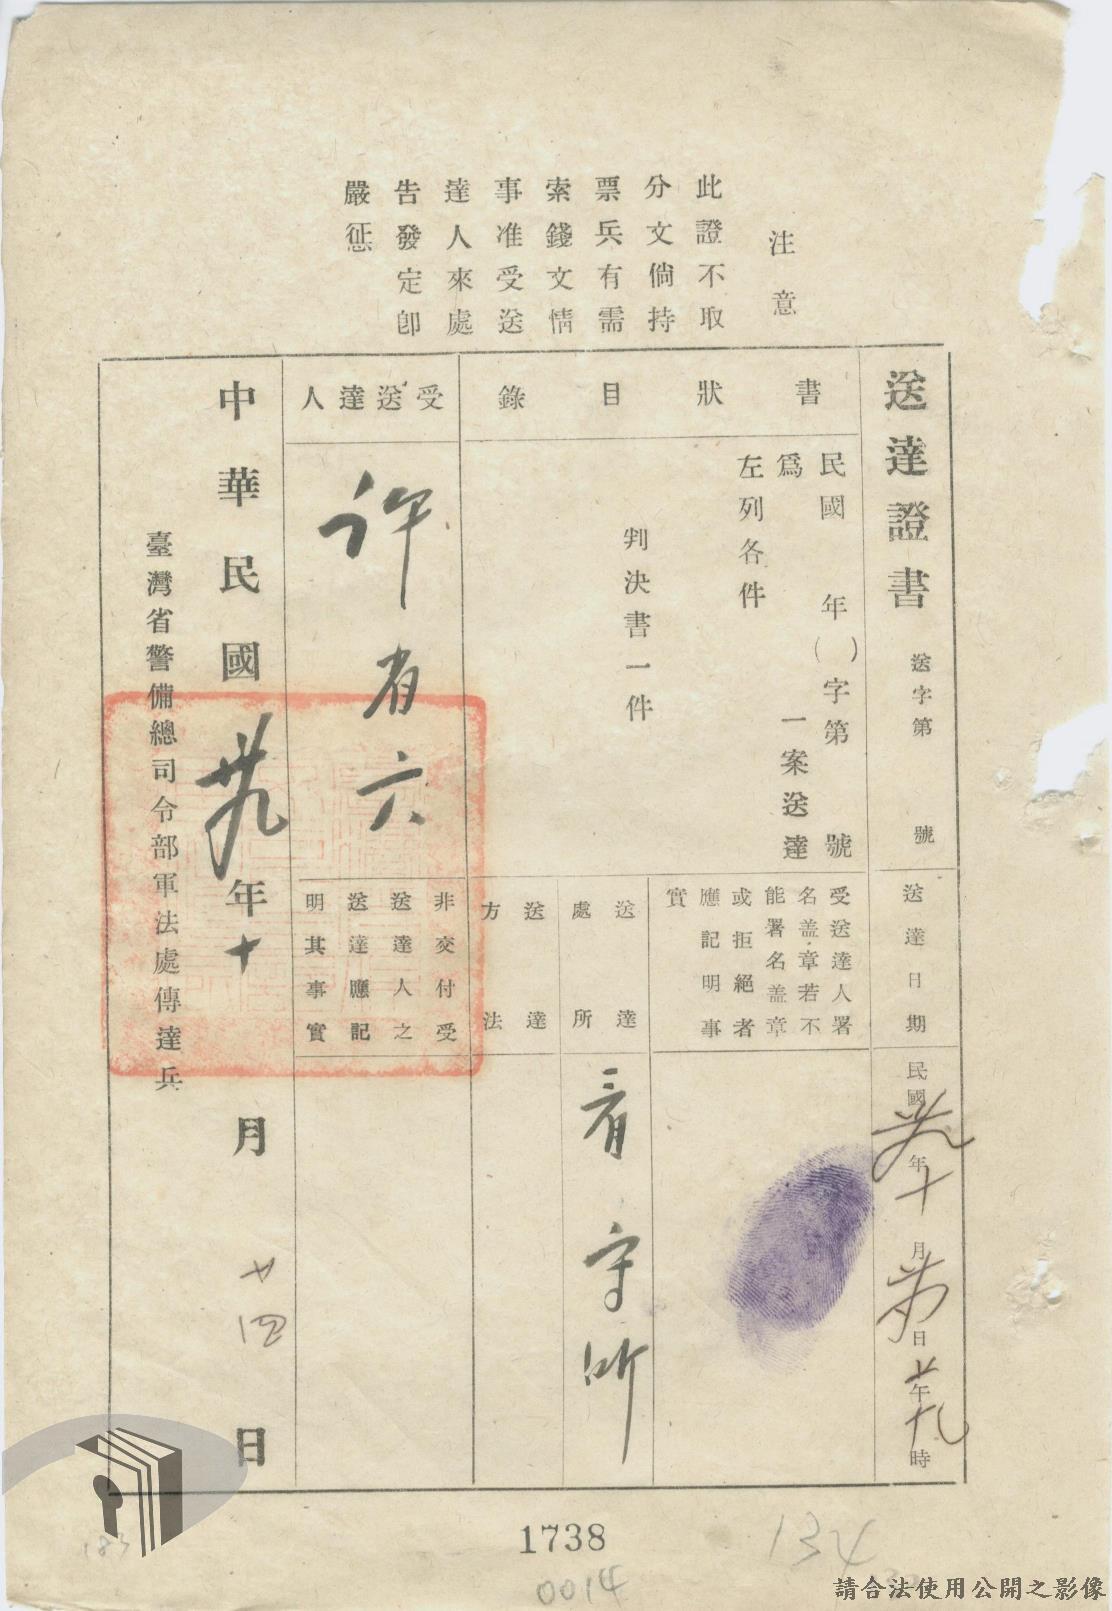 注意
此證不取
分文倘持
票兵有需
索錢文情
事准受送
達人來處
告發定卽
嚴懲
送達證書
送字第 號
書狀目錄
民國 年( )字第 號
爲 一案送達
左列各件
判決書一件
受送達人
許省六
送達日期
民國卅九年十月 日 午 時
受送達人署
名盖章若不
能署名盖章
或拒絕者
應記明事
實
送達處所
看守所
送達方法
非交付受
送達人之
送達應記
明其事實
中華民國卅九年十月廿四日
臺灣省警備總司令部軍法處傳達兵
1738
134
0014
183
請合法使用公開之影像